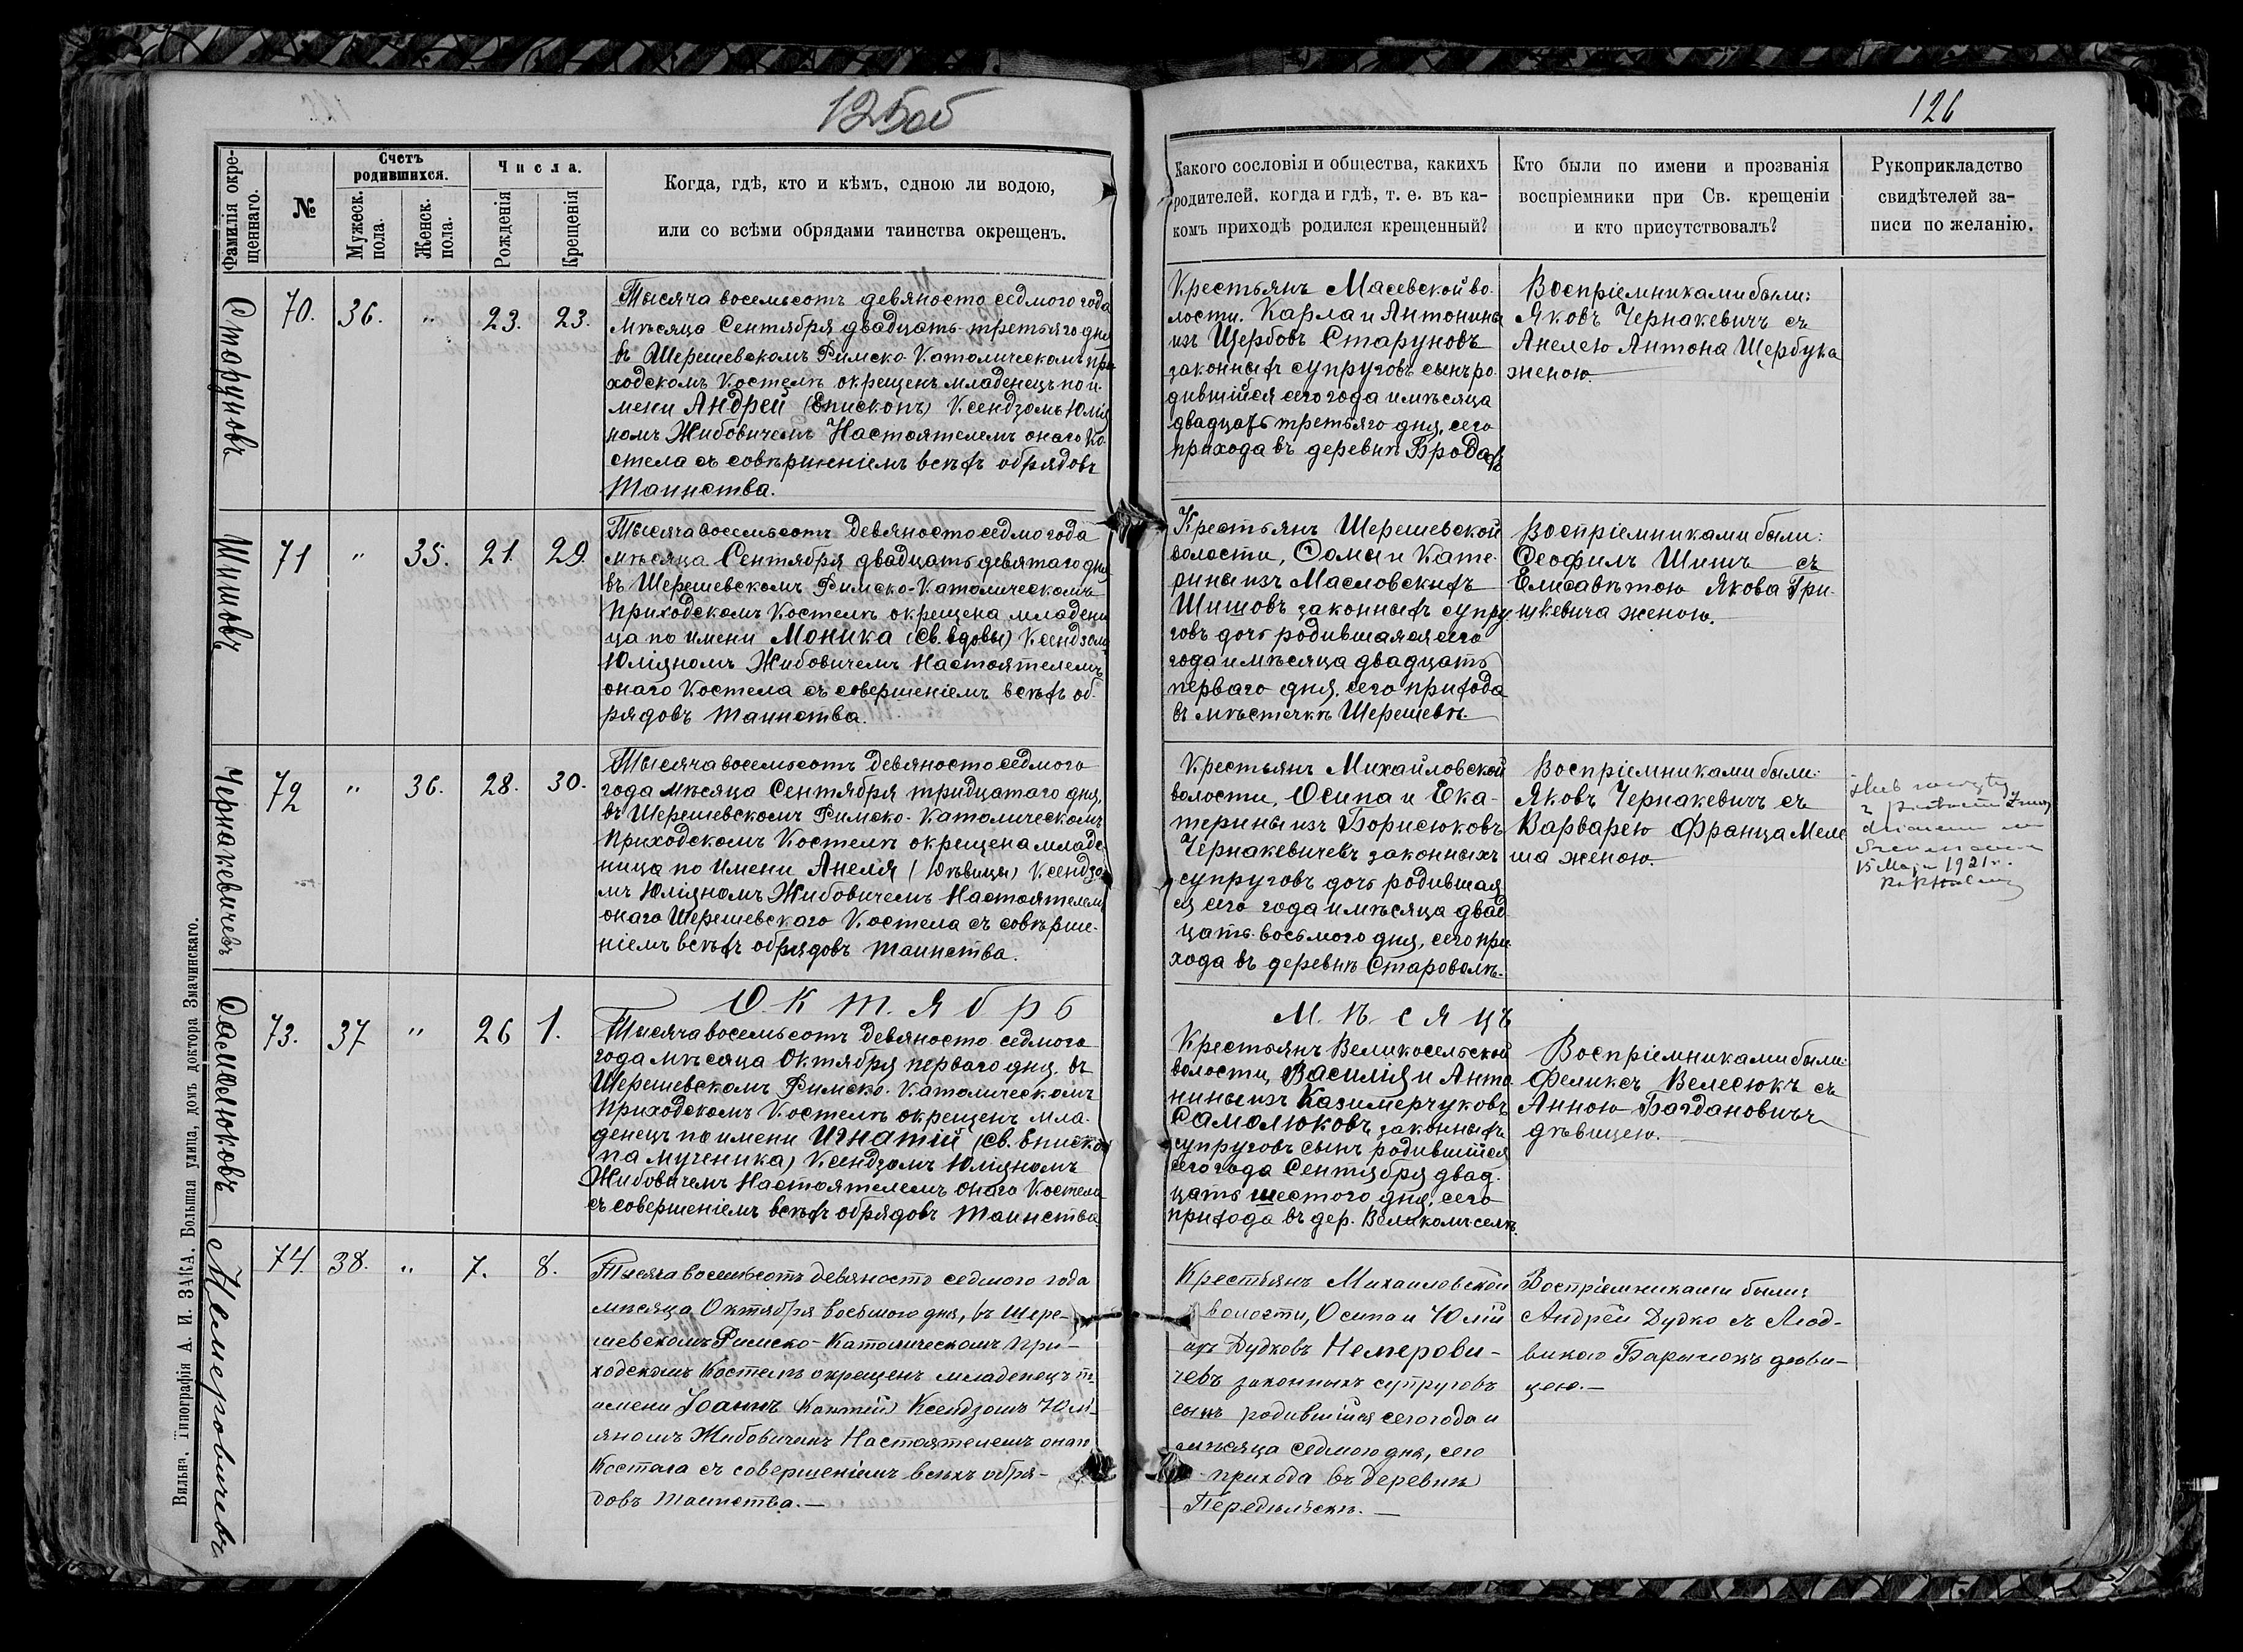 125об
126
Фамилія окре-
щеннаго.
№
Счетъ
родившихся.
Мужеск.
пола.
Женск.
пола.
Числа.
Рожденія
Крещенія
Когда, гдѣ, кто и кѣмъ, одною ли водою,
или со всѣми обрядами таинства окрещенъ.
Какого сословія и общества, какихъ
родителей, когда и гдѣ, т. е. въ ка-
комъ приходѣ родился крещенный?
Кто были по имени и прозванія
воспріемники при Св. крещеніи
и кто присутствовалъ?
Рукоприкладство
свидѣтелей за-
писи по желанію.
Старуновъ
70. 36. " 23. 23.
Тысяча восемьсотъ девяносто седмого года
мѣсяца Сентября двадцать третьяго дня
въ Шерешевскомъ Римско-Католическомъ при-
ходскомъ Костелѣ окрещенъ младенецъ по и-
мени Андрей (Епископъ) Ксендзомъ Юлія
номъ Жибовичемъ Настоятелемъ онаго Ко-
стела съ совѣршеніемъ всѣхъ обрядовъ
Таинства.
Крестьянъ Масевской во-
лости. Карла и Антонины
изъ Щербовъ Старуновъ
законныхъ супруговъ сынъ ро-
дившійся сего года и мѣсяца
двадцать третьяго дня, сего
прихода въ деревнѣ Бродахъ
Воспріемниками были:
Яковъ Чернакевичъ съ
Анелею Антона Щербука
женою.
Шишовъ
71 " 35. 21. 29.
Тысяча восемьсотъ девяносто седмо года
мѣсяца Сентября двадцать девятаго дня
въ Шерешевскомъ Римско-Католическомъ
Приходскомъ Костелѣ окрещена младени
ца по имени Моника (Св. вдовы) Ксендзомъ
Юліяномъ Жибовичемъ Настоятелемъ
онаго Костела съ совершеніемъ всѣхъ об-
рядовъ таинства.
Крестьянъ Шерешевской
волости, Ѳомы и Кате-
рины изъ Масловскихъ
Шишовъ законныхъ супру-
говъ дочь родившаяся сего
года и мѣсяца двадцать
перваго дня, сего прихода
въ мѣстечкѣ Шерешевѣ.
Воспріемниками были:
Ѳеофилъ Шишъ съ
Елисавѣтою Якова Гри-
шкевича женою.
Чернакевичевъ
72 " 36. 28. 30.
Тысяча восемьсотъ девяносто седмого
года мѣсяца Сентября тридцатаго дня,
въ Шерешевскомъ Римско-Католическомъ
Приходскомъ Костелѣ окрещена младе-
ница по имени Анеля (Дѣвицы) Ксендзо-
мъ Юліяномъ Жибовичемъ Настоятелемъ
онаго Шерешевскаго Костела съ совѣрше-
ніемъ всѣхъ обрядовъ таинства.
Крестьянъ Михайловской
волости, Осипа и Ека-
терины изъ Борисюковъ
Чернакевичевъ законныхъ
супруговъ дочь родившая
ся сего года и мѣсяца двад-
цать восьмого дня, сего при-
хода въ деревнѣ Староволѣ.
Воспріемниками были:
Яковъ Чернакевичъ съ
Варварею Франца Меле
ша женою.
15 Maja 1921 r.
Самолюковъ
Октябрь
Мѣсяцъ
73. 37 " 26 1.
Тысяча восемьсотъ девяносто седмого
года мѣсяца Октября перваго дня, въ
Шерешевскомъ Римско-Католическомъ
Приходскомъ Костелѣ окрещенъ мла-
денецъ по имени Игнатій (Св. Еписко
па мученика) Ксендзомъ Юліяномъ
Жибовичемъ Настоятелемъ онаго Костела
съ совершеніемъ всѣхъ обрядовъ Таинства.
Крестьянъ Великосельской
волости, Василія и Анто
нины изъ Казимерчуковъ
Самолюковъ законныхъ
супруговъ сынъ родившійся
сего года Сентября двад-
цать шестого дня, сего
прихода въ дер. Великомъ селѣ.
Воспріемниками были:
Феликсъ Велесюкъ съ
Анною Богдановичъ
дѣвицею.
Немеровичевъ
74. 38. " 7. 8.
Тысяча восемьсотъ девяносто седмого года
мѣсяца Октября восьмого дня, въ Шере-
шевскомъ Римско-Католическомъ При-
ходскомъ Костелѣ окрещенъ младенецъ по
имени Іоаннъ (Кантій) Ксендзомъ Юлі-
яномъ Жибовичемъ Настоятелемъ онаго
Костела съ совершеніемъ всѣхъ обря-
довъ таинства.—
Крестьянъ Михаиловской
волости, Осипа и Юліи
изъ Дудковъ Немерови-
чевъ законныхъ супруговъ
сынъ родившійся сего года и
мѣсяца седмого дня, сего
прихода въ деревнѣ
Передѣльскѣ.—
Воспріемниками были:
Андрей Дудко съ Люд-
викою Барысюкъ дѣви-
цею.—
Вильна, Типографія А. И. ЗАКА, Большая улица, домъ доктора Змачинскаго.